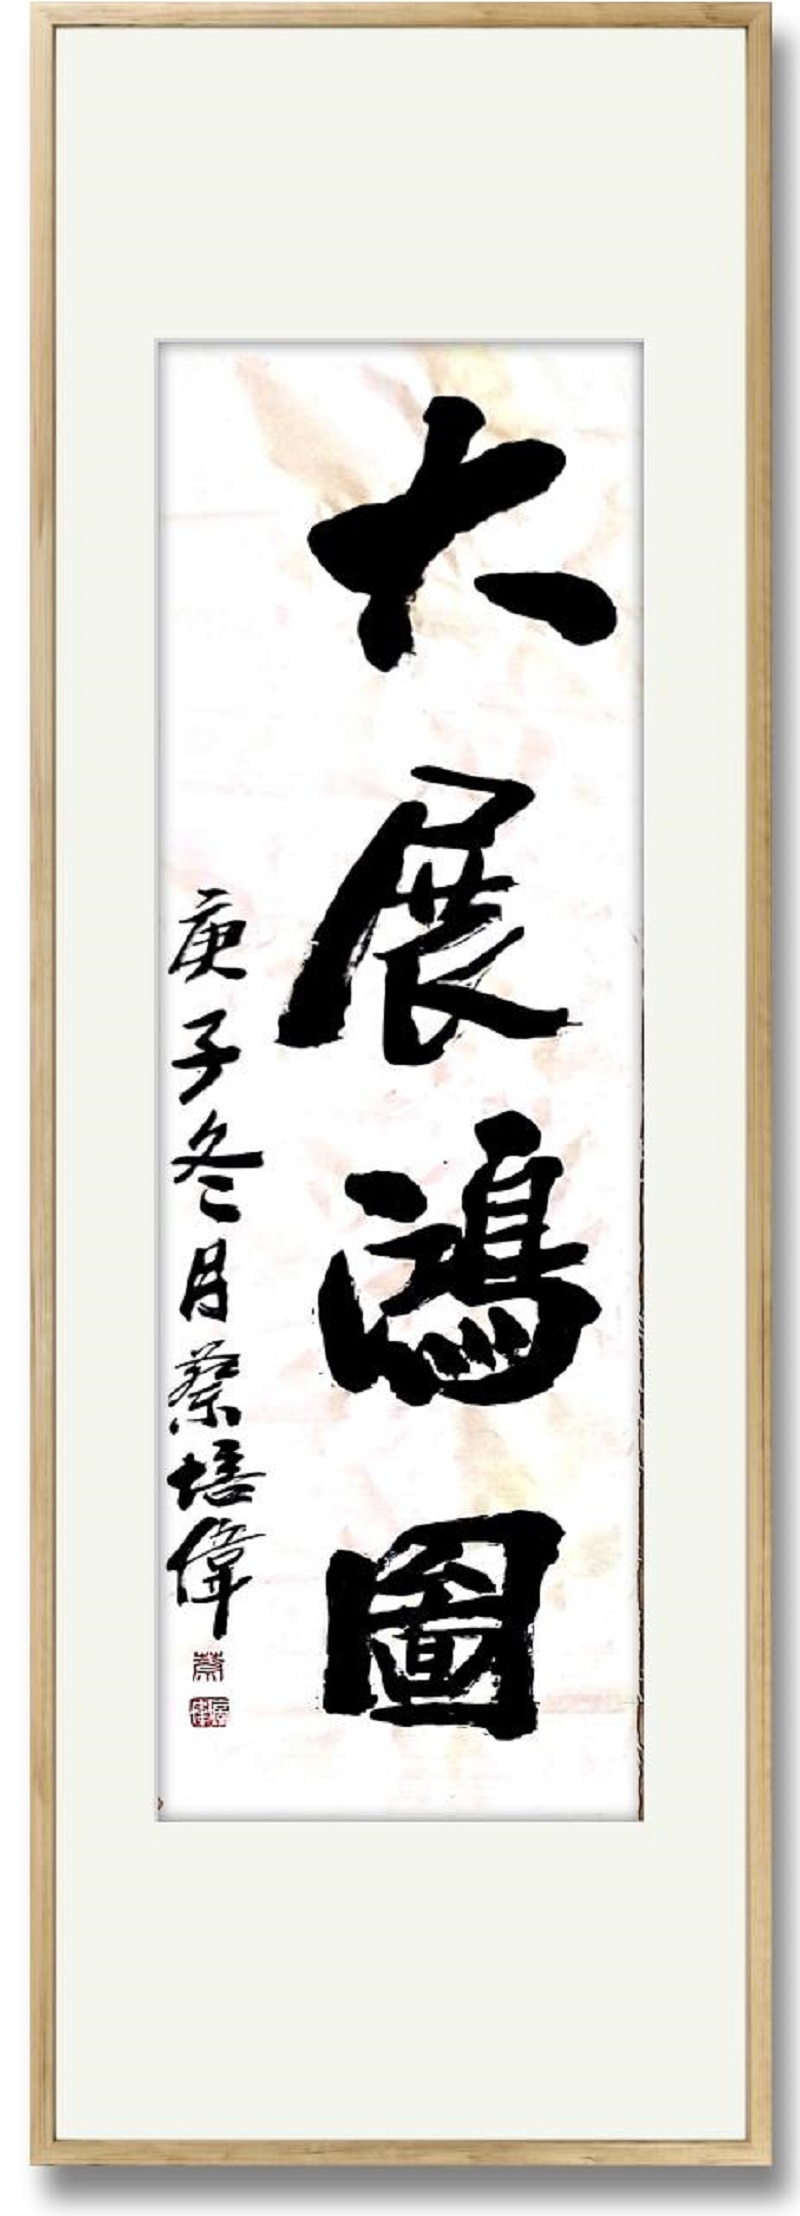 大展鴻圖
庚子冬月蔡培偉
蔡